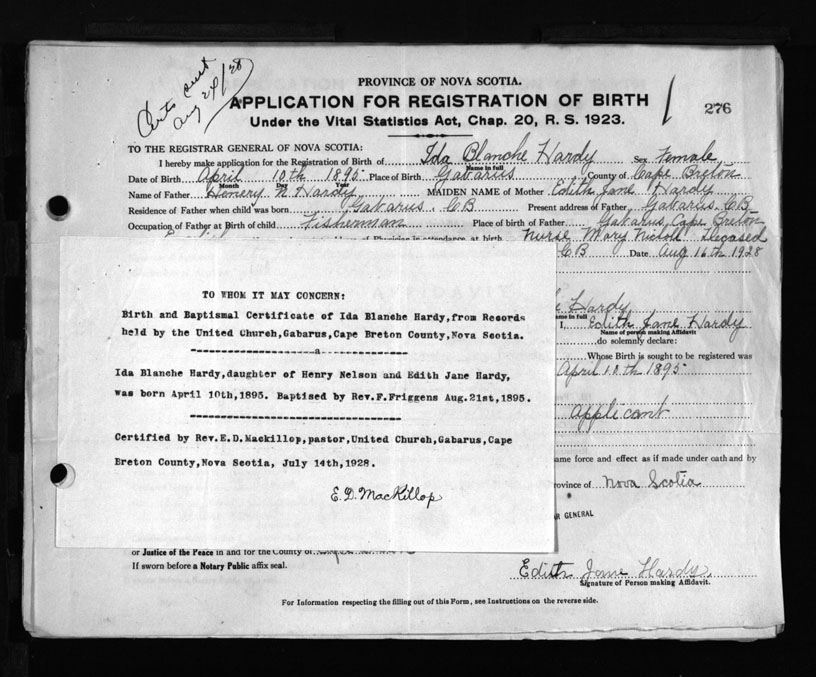 Certs sent
Aug 24/28
PROVINCE OF NOVA SCOTIA.
APPLICATION FOR REGISTRATION OF BIRTH
276
Under the Vital Statistics Act, Chap. 20, R. S. 1923.
TO THE REGISTRAR GENERAL OF NOVA SCOTIA:
I hereby make application for the Registration of Birth of Ida Blanche Hardy Sex Female
Name in full
Date of Birth April 10th 1895 Place of Birth Gabarus County of Cape Breton
Month Day Year
Name of Father Henery N Hardy MAIDEN NAME of Mother Edith Jane Hardy
Residence of Father when child was born Gabarus. CB Present address of Father Gabarus. CB
Occupation of Father at Birth of child Fisherman Place of birth of Father Gabarus, Cape Breton
Name of Physician in attendance at birth Nurse Mary Nicholl Deceased
CB Date Aug 16th 1928
TO WHOM IT MAY CONCERN:
Birth and Baptismal Certificate of Ida Blanche Hardy,from Records
held by the United Church,Gabarus,Cape Breton County,Nova Scotia.
Ida Blanche Hardy,daughter of Henry Nelson and Edith Jane Hardy,
was born April 10th,1895. Baptised by Rev.F.Friggens Aug.21st,1895.
Certified by Rev.E.D.Mackillop,pastor,United Church,Gabarus,Cape
Breton County,Nova Scotia, July 14th,1928.
E. D. MacKillop
Hardy
ame in full
I, Edith Jane Hardy
Name of person making Affidavit
do solemnly declare:
Whose Birth is sought to be registered was
April 10th 1895
applicant
ame force and effect as if made under oath and by
rovince of Nova Scotia
AR GENERAL
or Justice of the Peace in and for the County of
If sworn before a Notary Public affix seal.
Edith Jane Hardy
Signature of Person making Affidavit.
For Information respecting the filling out of this Form, see Instructions on the reverse side.